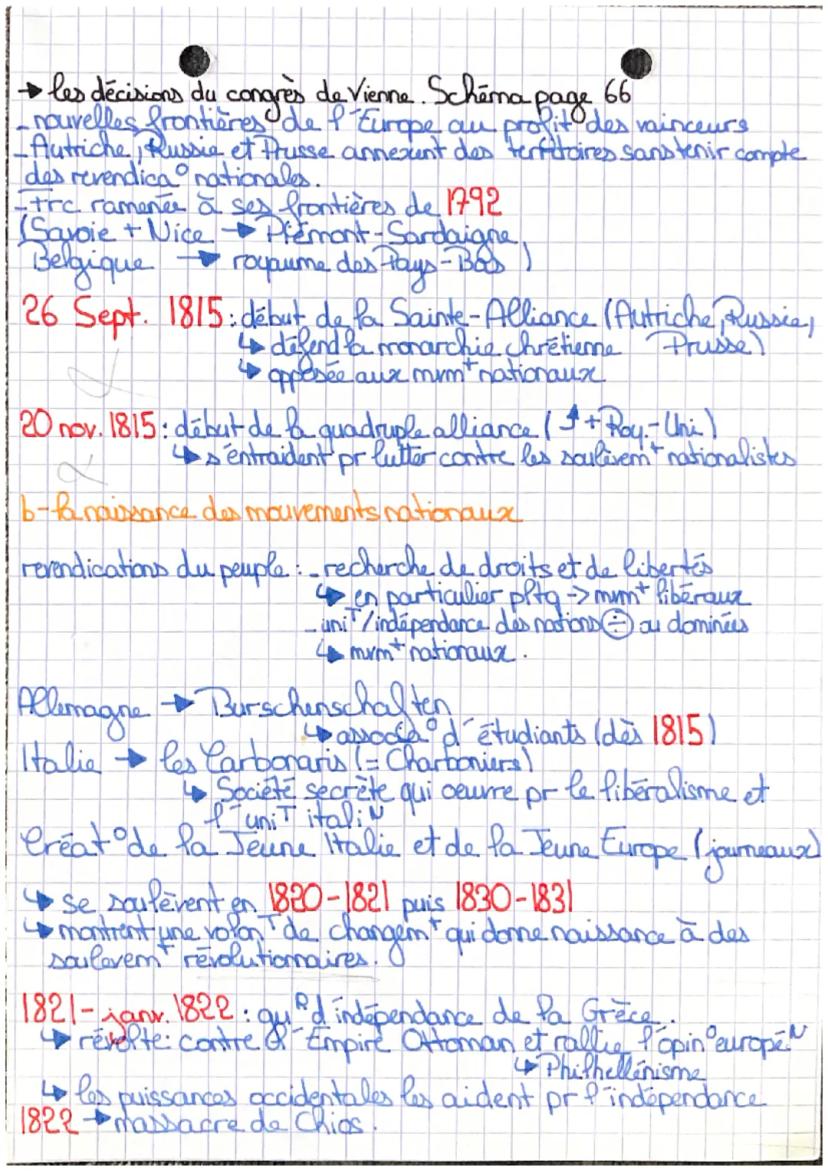 → les décisions du congrès de Vienne. Schéma page 66
- nouvelles frontières de l'Europe au profit des vainceurs
- Autriche, Russie et Prusse annexent des territoires sans tenir compte
des revendica° nationales.
- Frc ramenée à ses frontières de 1792
(Savoie + Nice → Piémont-Sardaigne,
Belgique → royaume des Pays-Bas)
26 Sept. 1815 : début de la Sainte-Alliance (Autriche, Russie,
↳ défend la monarchie chrétienne Prusse)
↳ opposée aux mvm^t nationaux
20 nov. 1815 : début de la quadruple alliance (⤴ + Roy.-Uni)
↳ s'entraident pr lutter contre les soulèvem^t nationalistes
b- la naissance des mouvements nationaux
revendications du peuple : - recherche de droits et de libertés
↳ en particulier pltq -> mvm^t libéraux
- uni^T/indépendance des nations ÷ ou dominées
↳ mvm^t nationaux.
Allemagne → Burschenschaften
↳ associa° d'étudiants (dès 1815)
Italie → les Carbonaris (= Charboniers)
↳ Société secrète qui oeuvre pr le libéralisme et
l'uni^T itali^N
Créat° de la Jeune Italie et de la Jeune Europe (journeaux)
↳ se soulèvent en 1820-1821 puis 1830-1831
↳ montrent une volon^T de changem^t qui donne naissance à des
soulevem^t révolutionnaires.
1821 - janv. 1822 : gu^R d'indépendance de la Grèce.
↳ révolte contre l'Empire Ottoman et rallie l'opin° europé^N
↳ Philhellénisme
↳ les puissances occidentales les aident pr l'indépendance
1822 → massacre de Chios.